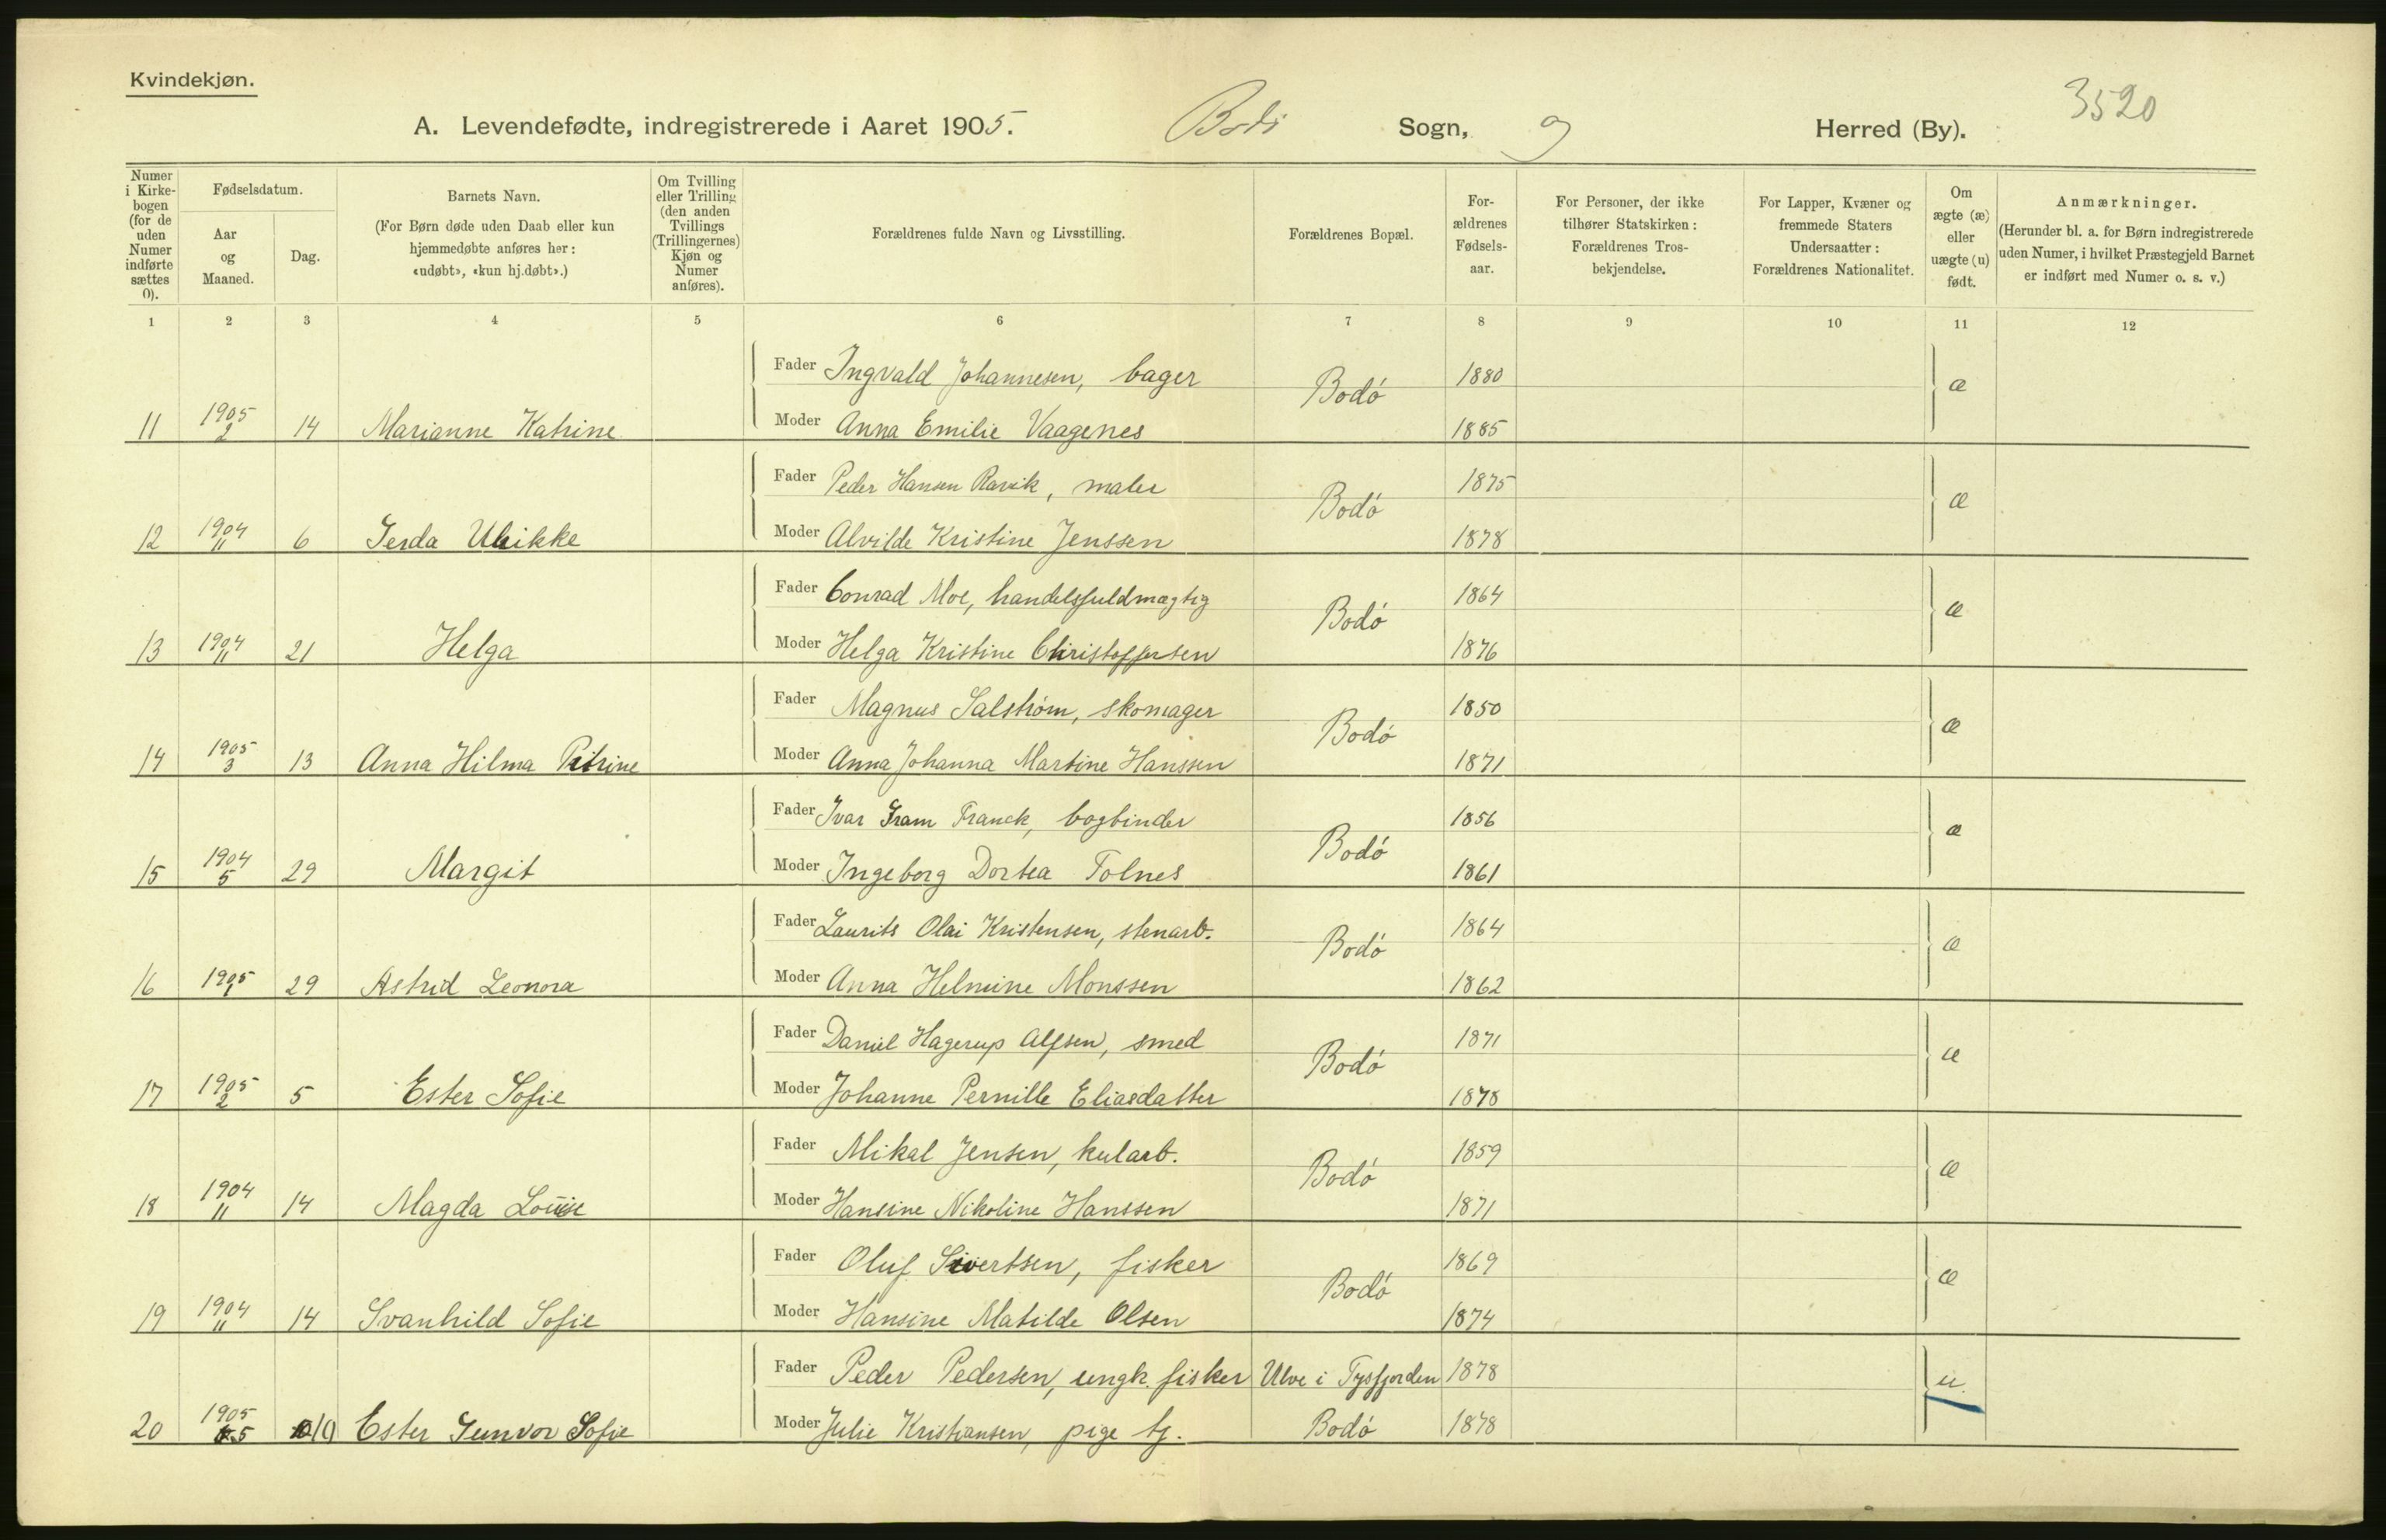 Kvindekjøn.
3520
A. Levendefødte, indregistrerede i Aaret 1905. Bodø Sogn, Herred (By).
Numer i Kirkebogen (for de uden Numer indførte sættes 0).
Fødselsdatum.
Aar og Maaned.
Dag.
Barnets Navn.
(For Børn døde uden Daab eller kun hjemmedøbte anføres her: «udøbt», «kun hj.døbt».)
Om Tvilling eller Trilling (den anden Tvillings (Trillingernes) Kjøn og Numer anføres).
Forældrenes fulde Navn og Livsstilling.
Forældrenes Bopæl.
For-ældrenes Fødsels-aar.
For Personer, der ikke tilhører Statskirken: Forældrenes Tros-bekjendelse.
For Lapper, Kvæner og fremmede Staters Undersaatter: Forældrenes Nationalitet.
Om ægte (æ) eller uægte (u) født.
Anmærkninger.
(Herunder bl. a. for Børn indregistrerede uden Numer, i hvilket Præstegjeld Barnet er indført med Numer o. s. v.)
1 2 3 4 5 6 7 8 9 10 11 12
Fader Ingvald Johannesen, bager Bodø 1880 æ
11 1905 2 14 Marianne Katrine Moder Anna Emilie Vaagenes 1885
Fader Peder Hansen Ravik, maler Bodø 1875 æ
12 1904 11 6 Gerda Ulrikke Moder Alvilde Kristine Jenssen 1878
Fader Conrad Moe, handelsfuldmægtig Bodø 1864 æ
13 1904 11 21 Helga Moder Helga Kristine Christoffersen 1876
Fader Magnus Salstrøm, skomager Bodø 1850 æ
14 1905 3 13 Anna Hilma Petrine Moder Anna Johanna Martine Hanssen 1871
Fader Ivar Gram Franck, bogbinder Bodø 1856 æ
15 1904 5 29 Margit Moder Ingeborg Dortea Tolnes 1861
Fader Laurits Olai Kristensen, stenarb. Bodø 1864 æ
16 1905 1 29 Astrid Leonora Moder Anna Helmine Monssen 1862
Fader Daniel Hagerup Alfsen, smed Bodø 1871 æ
17 1905 2 5 Ester Sofie Moder Johanne Pernille Eliasdatter 1878
Fader Mikal Jensen, kularb. Bodø 1859 æ
18 1904 11 14 Magda Louise Moder Hansine Nikoline Hanssen 1871
Fader Oluf Sivertsen, fisker Bodø 1869 æ
19 1904 11 14 Svanhild Sofie Moder Hansine Matilde Olsen 1874
Fader Peder Pedersen, ungk. fisker Ulve i Tysfjorden 1878 u.
20 1905 5 10 Ester Gunvor Sofie Moder Julie Kristiansen, pige tj. Bodø 1878